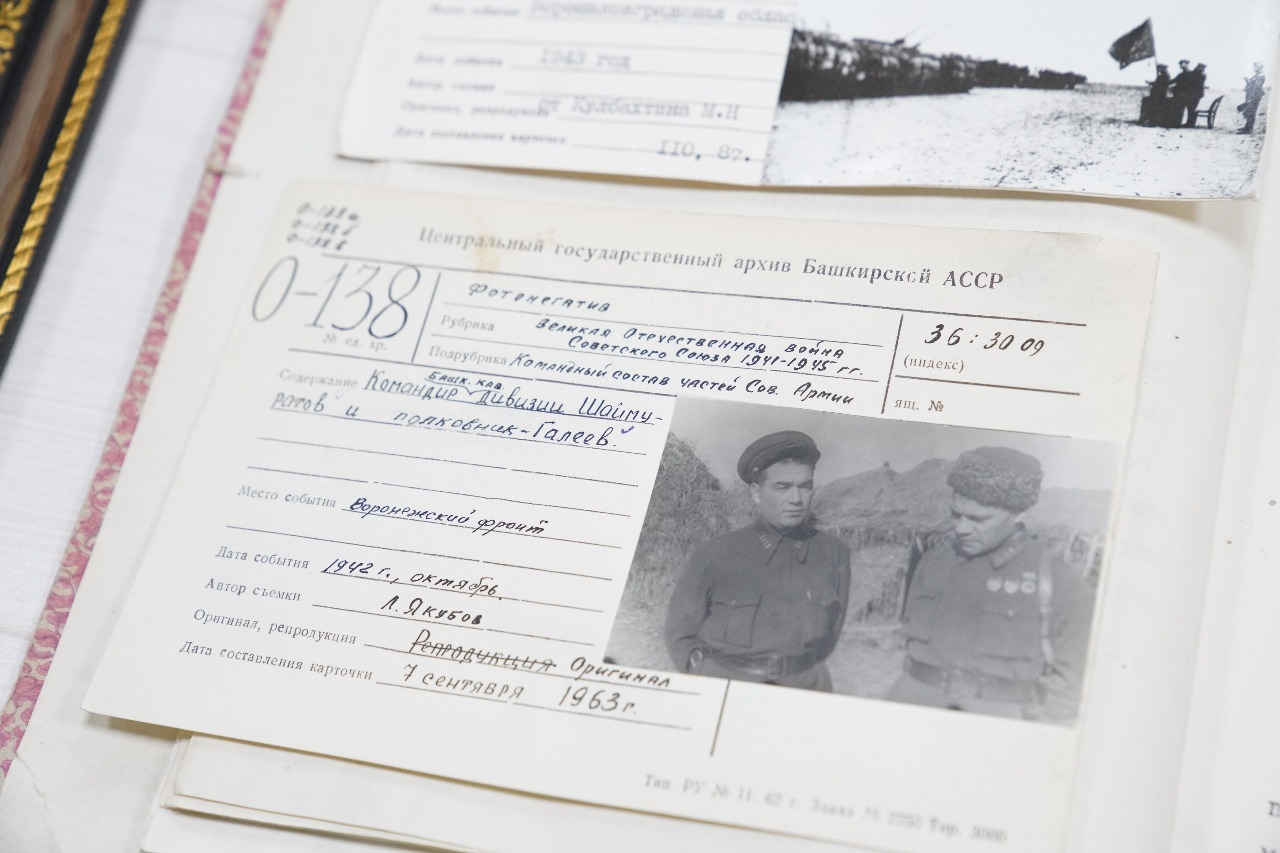 Ворошиловградская облас
Дата события 1943 год
Автор съемки
Оригинал, репродукция от Кулбахтина М.Н
Дата составления карточки 110, 87.
О-138 а
О-138 б
О-138 в
Центральный государственный архив Башкирской АССР
О-138
№ ед. хр.
Фотонегатив
Рубрика Великая Отечественная война
Советского Союза 1941-1945 гг.
Подрубрика Командный состав частей Сов. Армии
36:3009
(индекс)
ящ. №
Башк. кав.
Содержание Командир дивизии Шайму-
ратов и полковник-Галеев.
Место события Воронежский фронт
Дата события 1942 г., октябрь.
Автор съемки Л. Якубов
Оригинал, репродукция Репродукция Оригинал
Дата составления карточки 7 сентября 1963 г.
Тип. РУ № 11. 62 г. Заказ 75 Тир. 3000